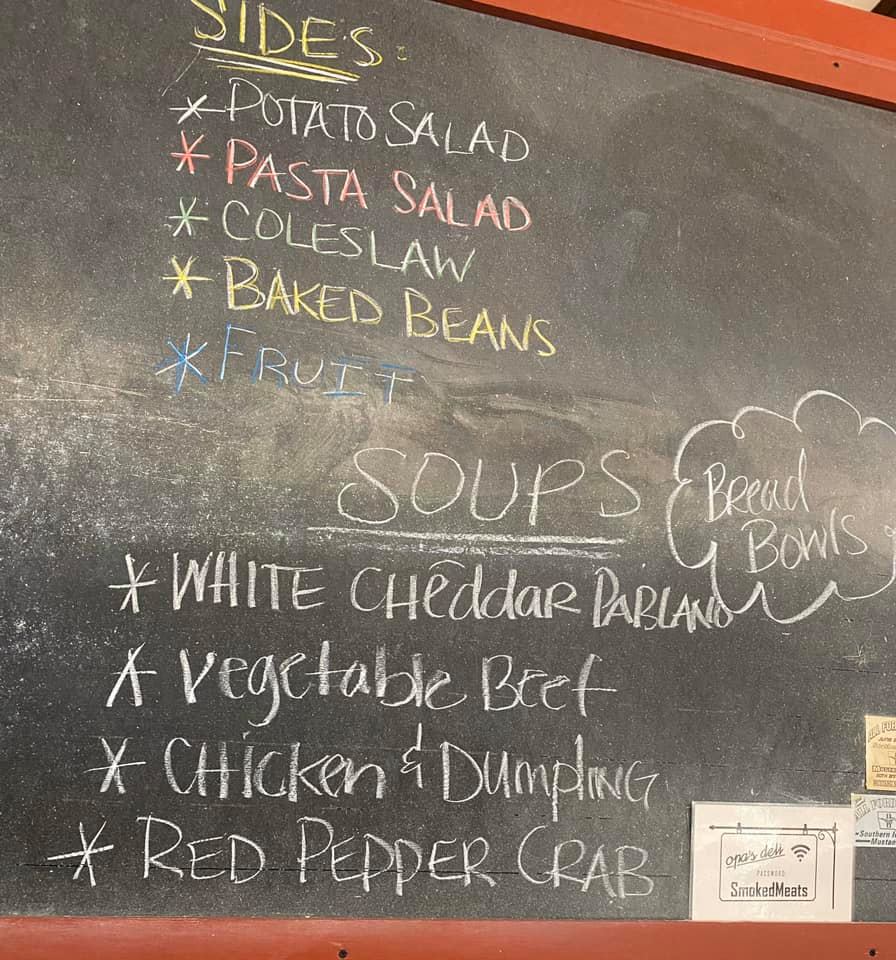 SIDES:
* POTATO SALAD
* PASTA SALAD
* COLESLAW
* BAKED BEANS
* FRUIT
SOUPS
Bread
Bowls
* WHITE CHeddar PABLANO
* Vegetable Beef
* CHicken & DumplING
* RED PEPPER CRAB
opa's deli
PASSWORD
SmokedMeats